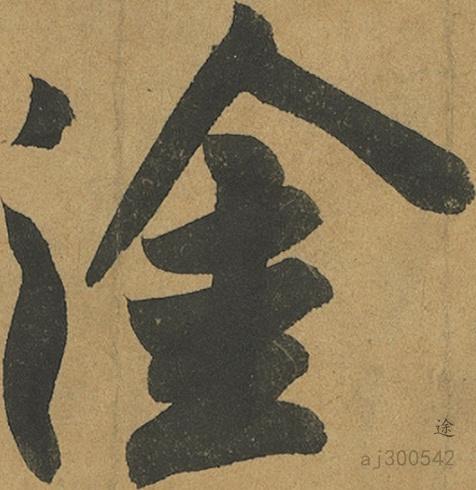 塗
途
aj300542